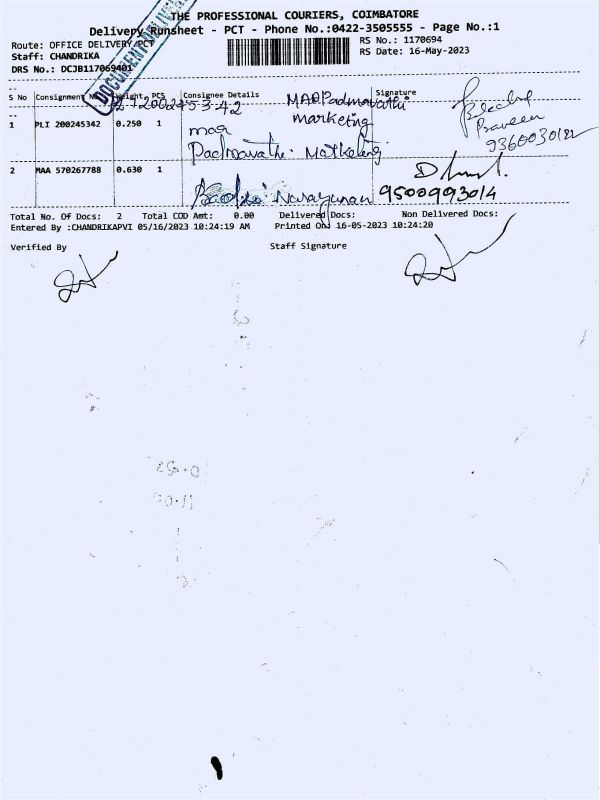 THE PROFESSIONAL COURIERS, COIMBATORE
Delivery Runsheet - PCT - Phone No.:0422-3505555 - Page No.:1
Route: OFFICE DELIVERY PCT
RS No.: 1170694
Staff: CHANDRIKA
RS Date: 16-May-2023
DRS No.: DCJB117069401
S No Consignment No Weight PCS Consignee Details Signature
200245342 MAA Padmavathi
marketing
1 PLI 200245342 0.250 1
maa
Padmavathi Marketing
Praveen
9360030182
2 MAA 570267788 0.630 1
Narayanan 9500993014
Total No. Of Docs: 2 Total COD Amt: 0.00 Delivered Docs: Non Delivered Docs:
Entered By :CHANDRIKAPVI 05/16/2023 10:24:19 AM Printed On: 16-05-2023 10:24:20
Verified By Staff Signature